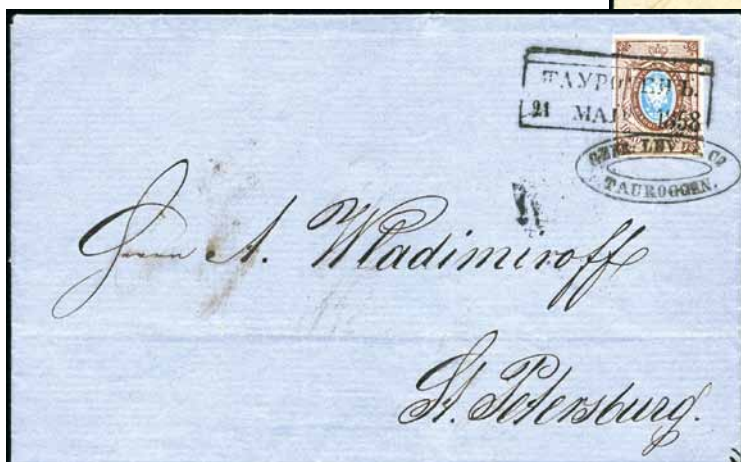 ТАУРОГЕНЪ.
21 МАІЯ 1858
LEVY & Co
TAUROGGEN.
Herrn A. Wladimiroff
St. Petersburg.